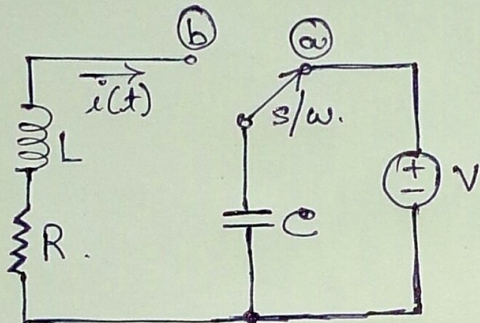 b
a
i(t)
s/w.
L
R.
C
+
−
V